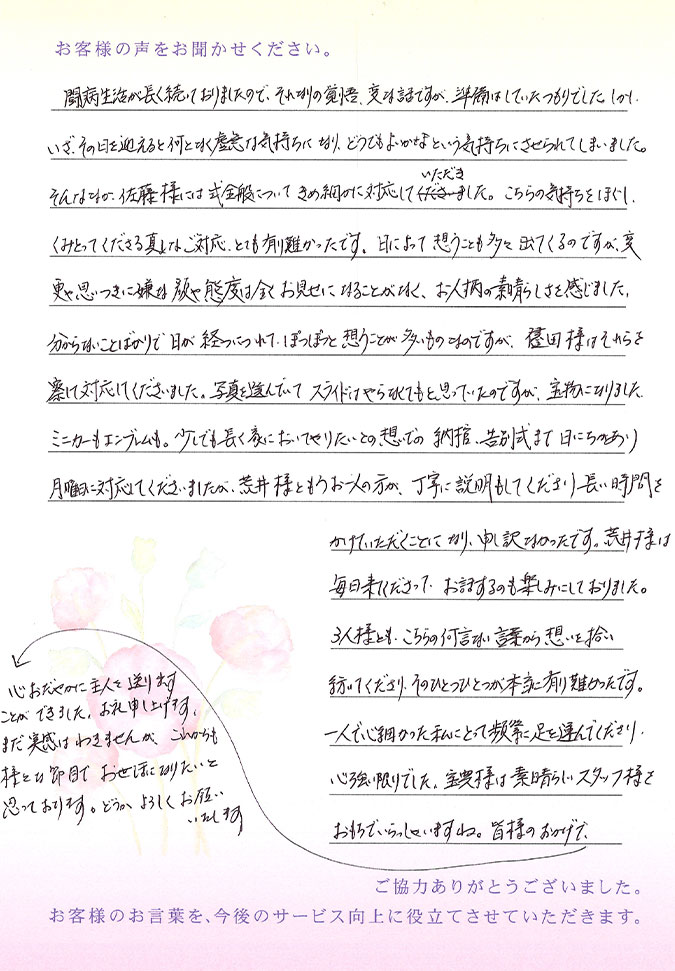 お客様の声をお聞かせください。
闘病生活が長く続いておりましたので、それなりの覚悟、変な話ですが、準備はしていたつもりでした。しかし、
いざ、その日を迎えると何となく虚無な気持ちになり、どうでもよいかなという気持ちにさせられてしまいました。
そんななか、佐藤様には式全般についてきめ細かに対応していただきました。こちらの気持ちをほぐし、
くみとってくださる真しなご対応、とても有り難かったです。日によって想うことも多々出てくるのですが、変
更や思いつきに嫌な顔や態度は全くお見せになることがなく、お人柄の素晴らしさを感じました。
分からないことばかりで日が経つにつれて、ぽつぽつと想うことが多いものなのですが、窪田様はそれらを
察して対応してくださいました。写真を選んでいてスライドはやらなくてもと思っていたのですが、宝物になりました。
ミニカーもエンブレムも。少しでも長く家においてやりたいとの想いでの納棺、告別式まで日にちがあり
月曜日に対応してくださいましたが、荒井様ともうお一人の方が、丁寧に説明もしてくださり長い時間を
かけていただくことになり、申し訳なかったです。荒井様は
毎日来てくださって、お話するのも楽しみにしておりました。
3人様とも、こちらの何言ない言葉から想いを拾い
紡いでくださり、そのひとつひとつが本当に有り難かったです。
一人で心細かった私にとって頻繁に足を運んでくださり、
心強い限りでした。宝典様は素晴らしいスタッフ様を
おもちでいらっしゃいますね。皆様のおかげで、
心おだやかに主人を送ります
ことができました。お礼申し上げます。
まだ実感はわきませんが、これからも
様々な節目でお世話になりたいと
思っております。どうか、よろしくお願い
いたします
ご協力ありがとうございました。
お客様のお言葉を、今後のサービス向上に役立てさせていただきます。